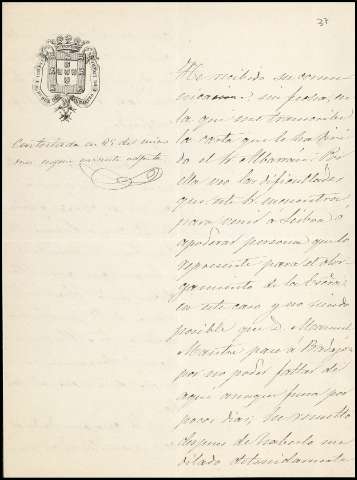 37
Contestada en 25 del mismo
mes segun minuta adjunta
He recibido su comu
nicacion, sin fecha, en
la que me transcribe
la carta que le ha diri
do el Sr Albarran. Por
ella veo las dificultades
que este Sr encuentra
para venir a Lisboa o
apoderar persona que lo
represente para el otor
gamiento de la Escra.
en este caso y no siendo
posible que D. Manuel
Maestre pase á Badajoz
por no poder faltar de
aqui aunque fuera por
pocos dias; he resuelto
despues de haberlo me
ditado detenidamente